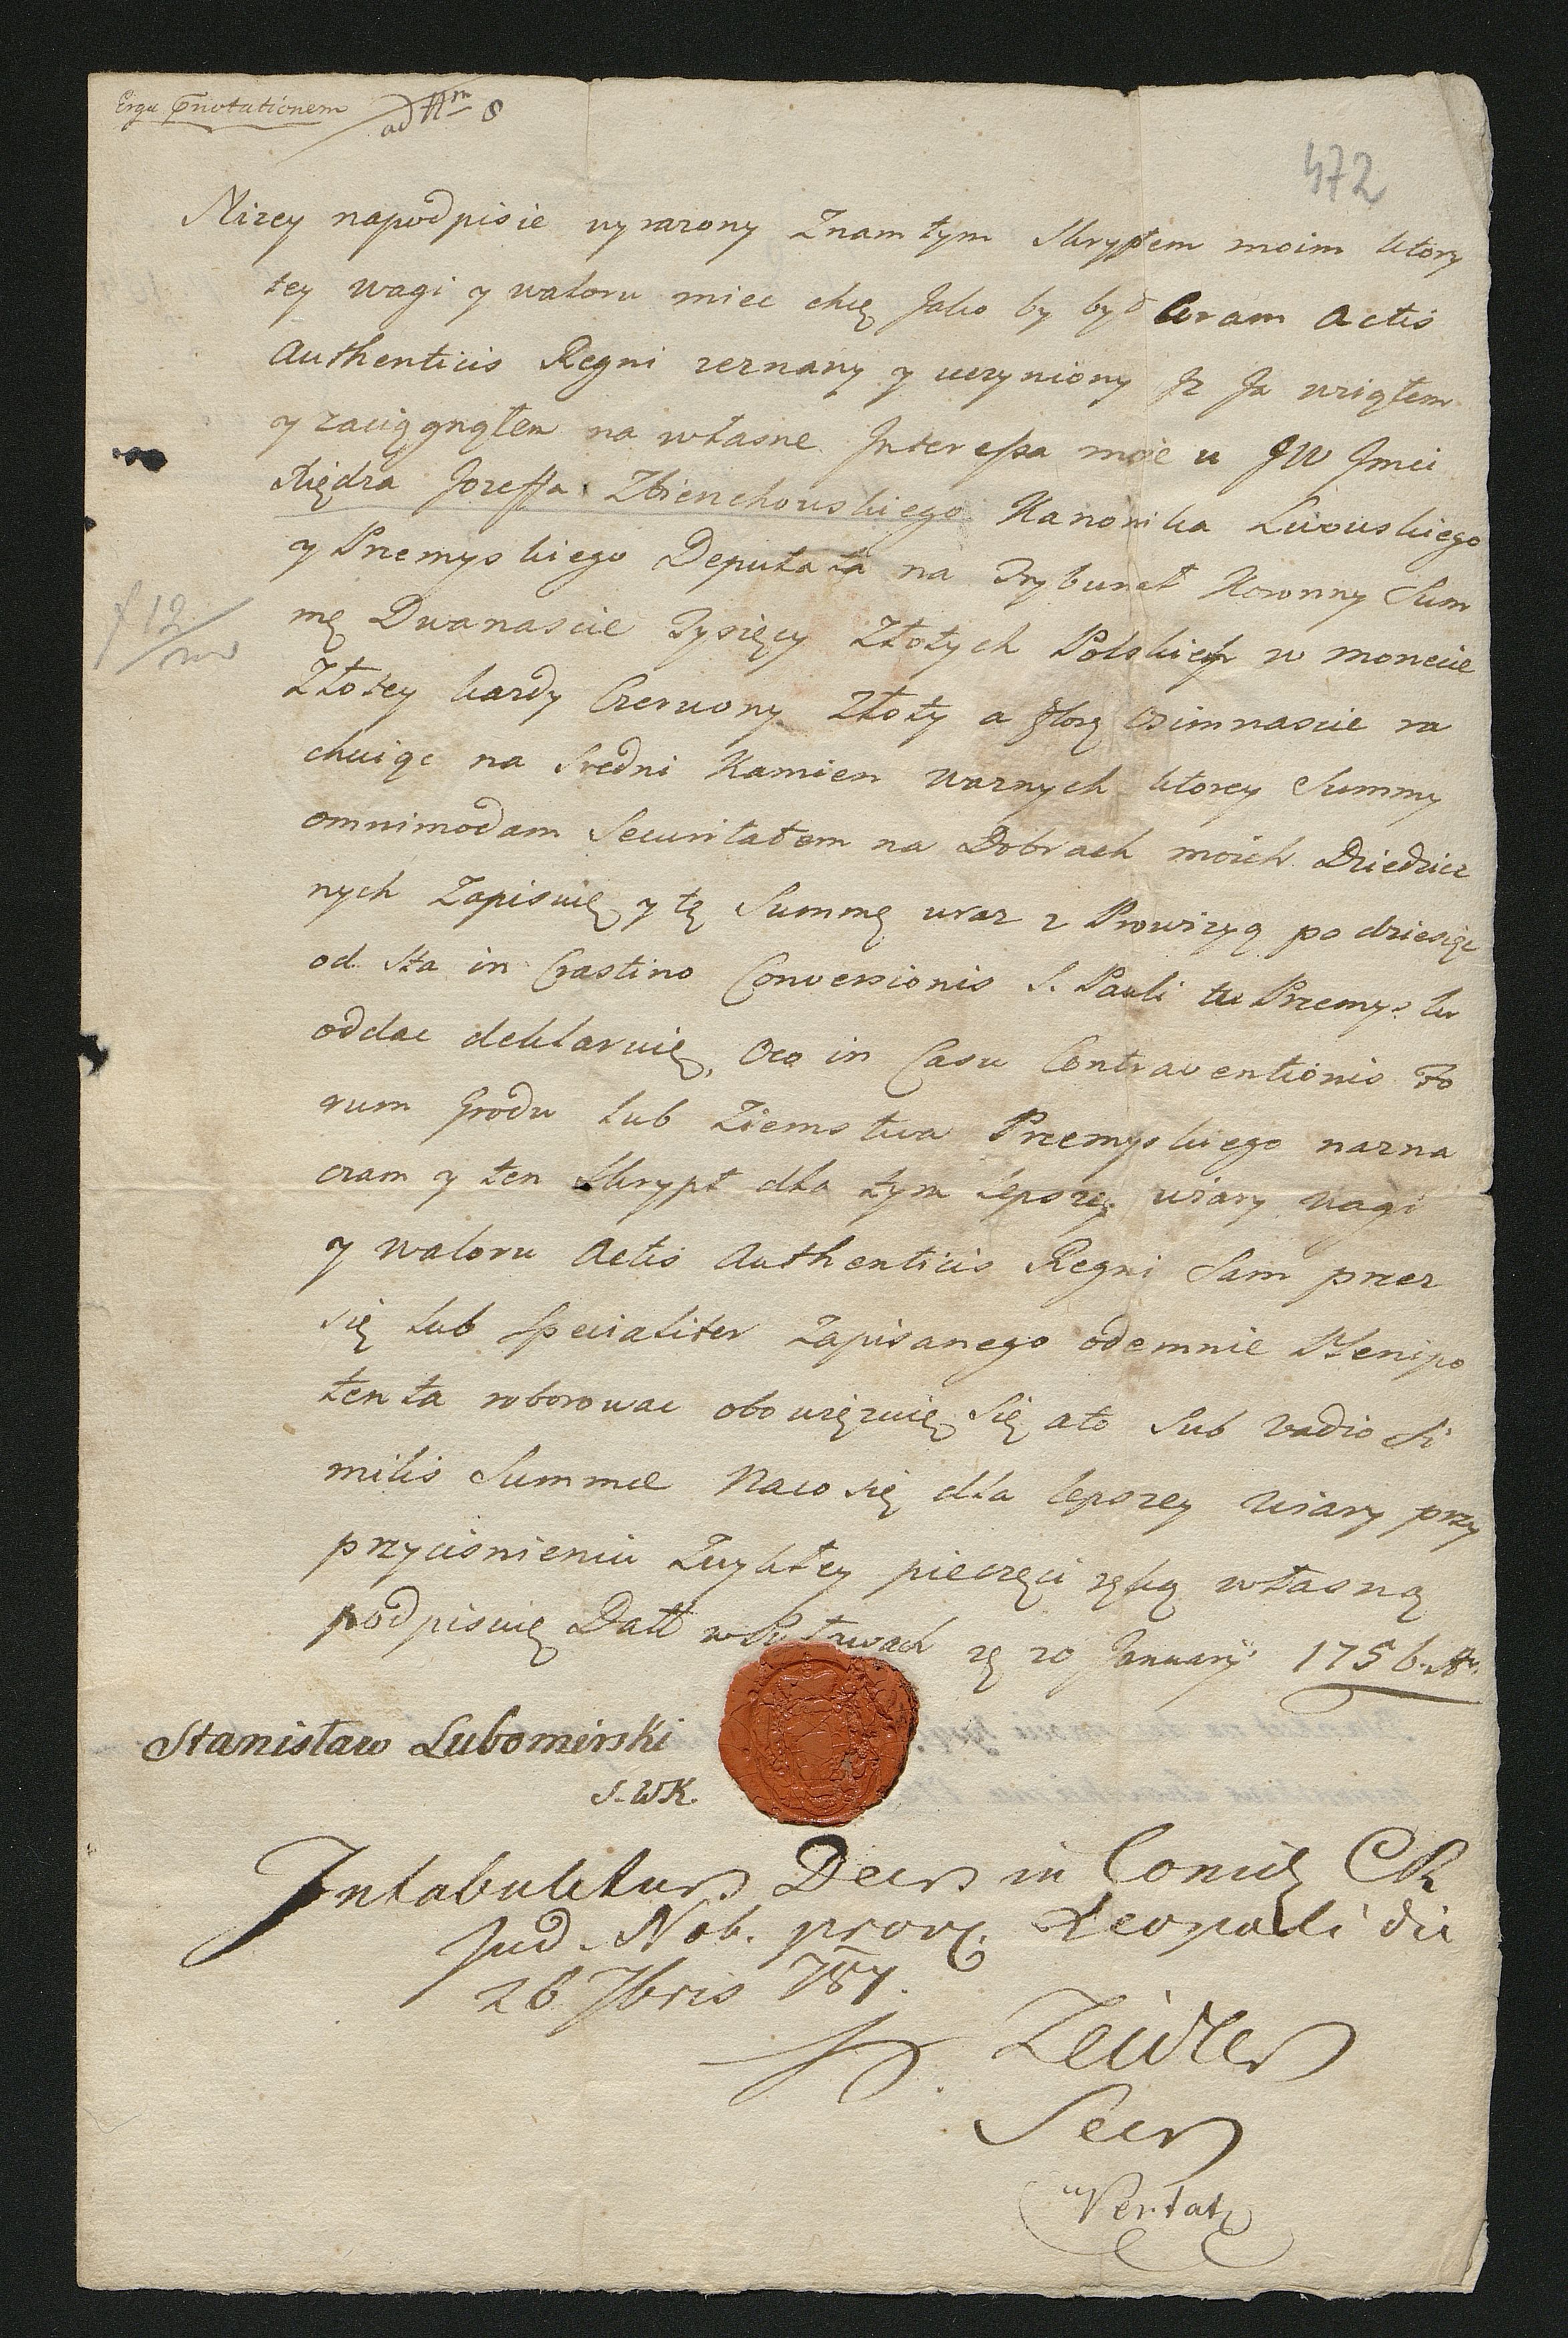 Erga Prnotationem ad Nm 8
472
Nizey napodpisie wyrazony Znam tym Skryptem moim ktory
tey wagi y waloru miec chcę Jako by był Coram Actis
Authenticis Regni zeznany y uczyniony Jz Ja wziąłem
y zaciągnąłem na własne Interessa moie u JW Jmci
Xiędza Jozeffa Kanonika Lwowskiego
y Przemyskiego Deputata na Trybunał Koronny Sum
mę Dwanascie Tysięcy Złotych Polskich w monecie
Złotey kazdy Czerwony Złoty a flor Osimnascie ra
chuiąc na Sredni Kamien waznych ktorey Summy
omnimodam Securitatem na Dobrach moich Dziedzicz
nych Zapisuię y tę Summę wraz z Prowizyą po dziesięc
od Sta in Crastino Conversionis S. Pauli tu w Przemyslu
oddac deklaruię, Oco in Casu Contraventionis Fo
rum Grodu lub Ziemstwa Przemyskiego nazna
czam y ten Skrypt dla tym lepszey wiary wagi
y waloru Actis Authenticis Regni Sam przez
się lub Specialiter Zapisanego odemnie Plenipo
tenta roborowac obowięzuię się ato Sub vadio Si
milis Summae Naco się dla lepszey Wiary przy
przycisnieniu Zwykłey pieczęci ręką własną
podpisuię Datt zę 20 January 1756 Ao
f 12/m
Stanisław Lubomirski
S.WK.
Intabuletur Decr in Consil CR
Jud. Nob. prov. Leopoli die
26 7bris 787.
Zeidler
Secr
Vertatr